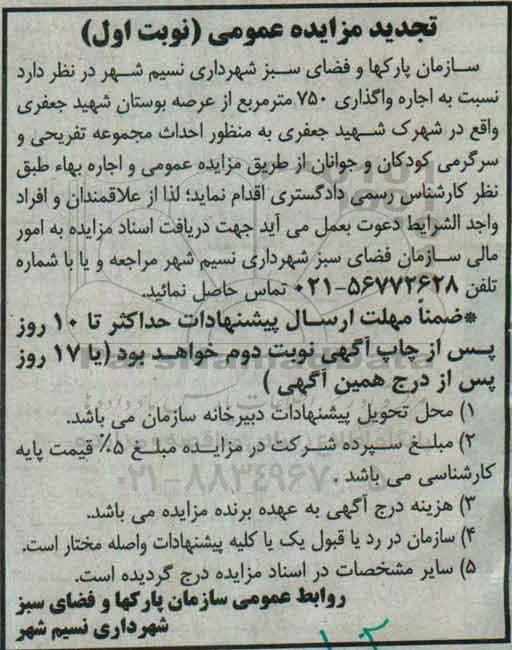 تجدید مزایده عمومی (نوبت اول)
سازمان پارکها و فضای سبز شهرداری نسیم شهر در نظر دارد
نسبت به اجاره واگذاری ۷۵۰ مترمربع از عرصه بوستان شهید جعفری
واقع در شهرک شهید جعفری به منظور احداث مجموعه تفریحی و
سرگرمی کودکان و جوانان از طریق مزایده عمومی و اجاره بهاء طبق
نظر کارشناس رسمی دادگستری اقدام نماید؛ لذا از علاقمندان و افراد
واجد الشرایط دعوت بعمل می آید جهت دریافت اسناد مزایده به امور
مالی سازمان فضای سبز شهرداری نسیم شهر مراجعه و یا با شماره
تلفن ۵۶۷۷۲۶۲۸-۰۲۱ تماس حاصل نمائید.
*ضمناً مهلت ارسال پیشنهادات حداکثر تا ۱۰ روز
پس از چاپ آگهی نوبت دوم خواهد بود (یا ۱۷ روز
پس از درج همین آگهی )
۱) محل تحویل پیشنهادات دبیرخانه سازمان می باشد.
۲) مبلغ سپرده شرکت در مزایده مبلغ ۵٪ قیمت پایه
کارشناسی می باشد .
۳) هزینه درج آگهی به عهده برنده مزایده می باشد.
۴) سازمان در رد یا قبول یک یا کلیه پیشنهادات واصله مختار است.
۵) سایر مشخصات در اسناد مزایده درج گردیده است.
روابط عمومی سازمان پارکها و فضای سبز
شهرداری نسیم شهر
ParsNamadData
۰۲۱-۸۸۳۴۹۶۷۰